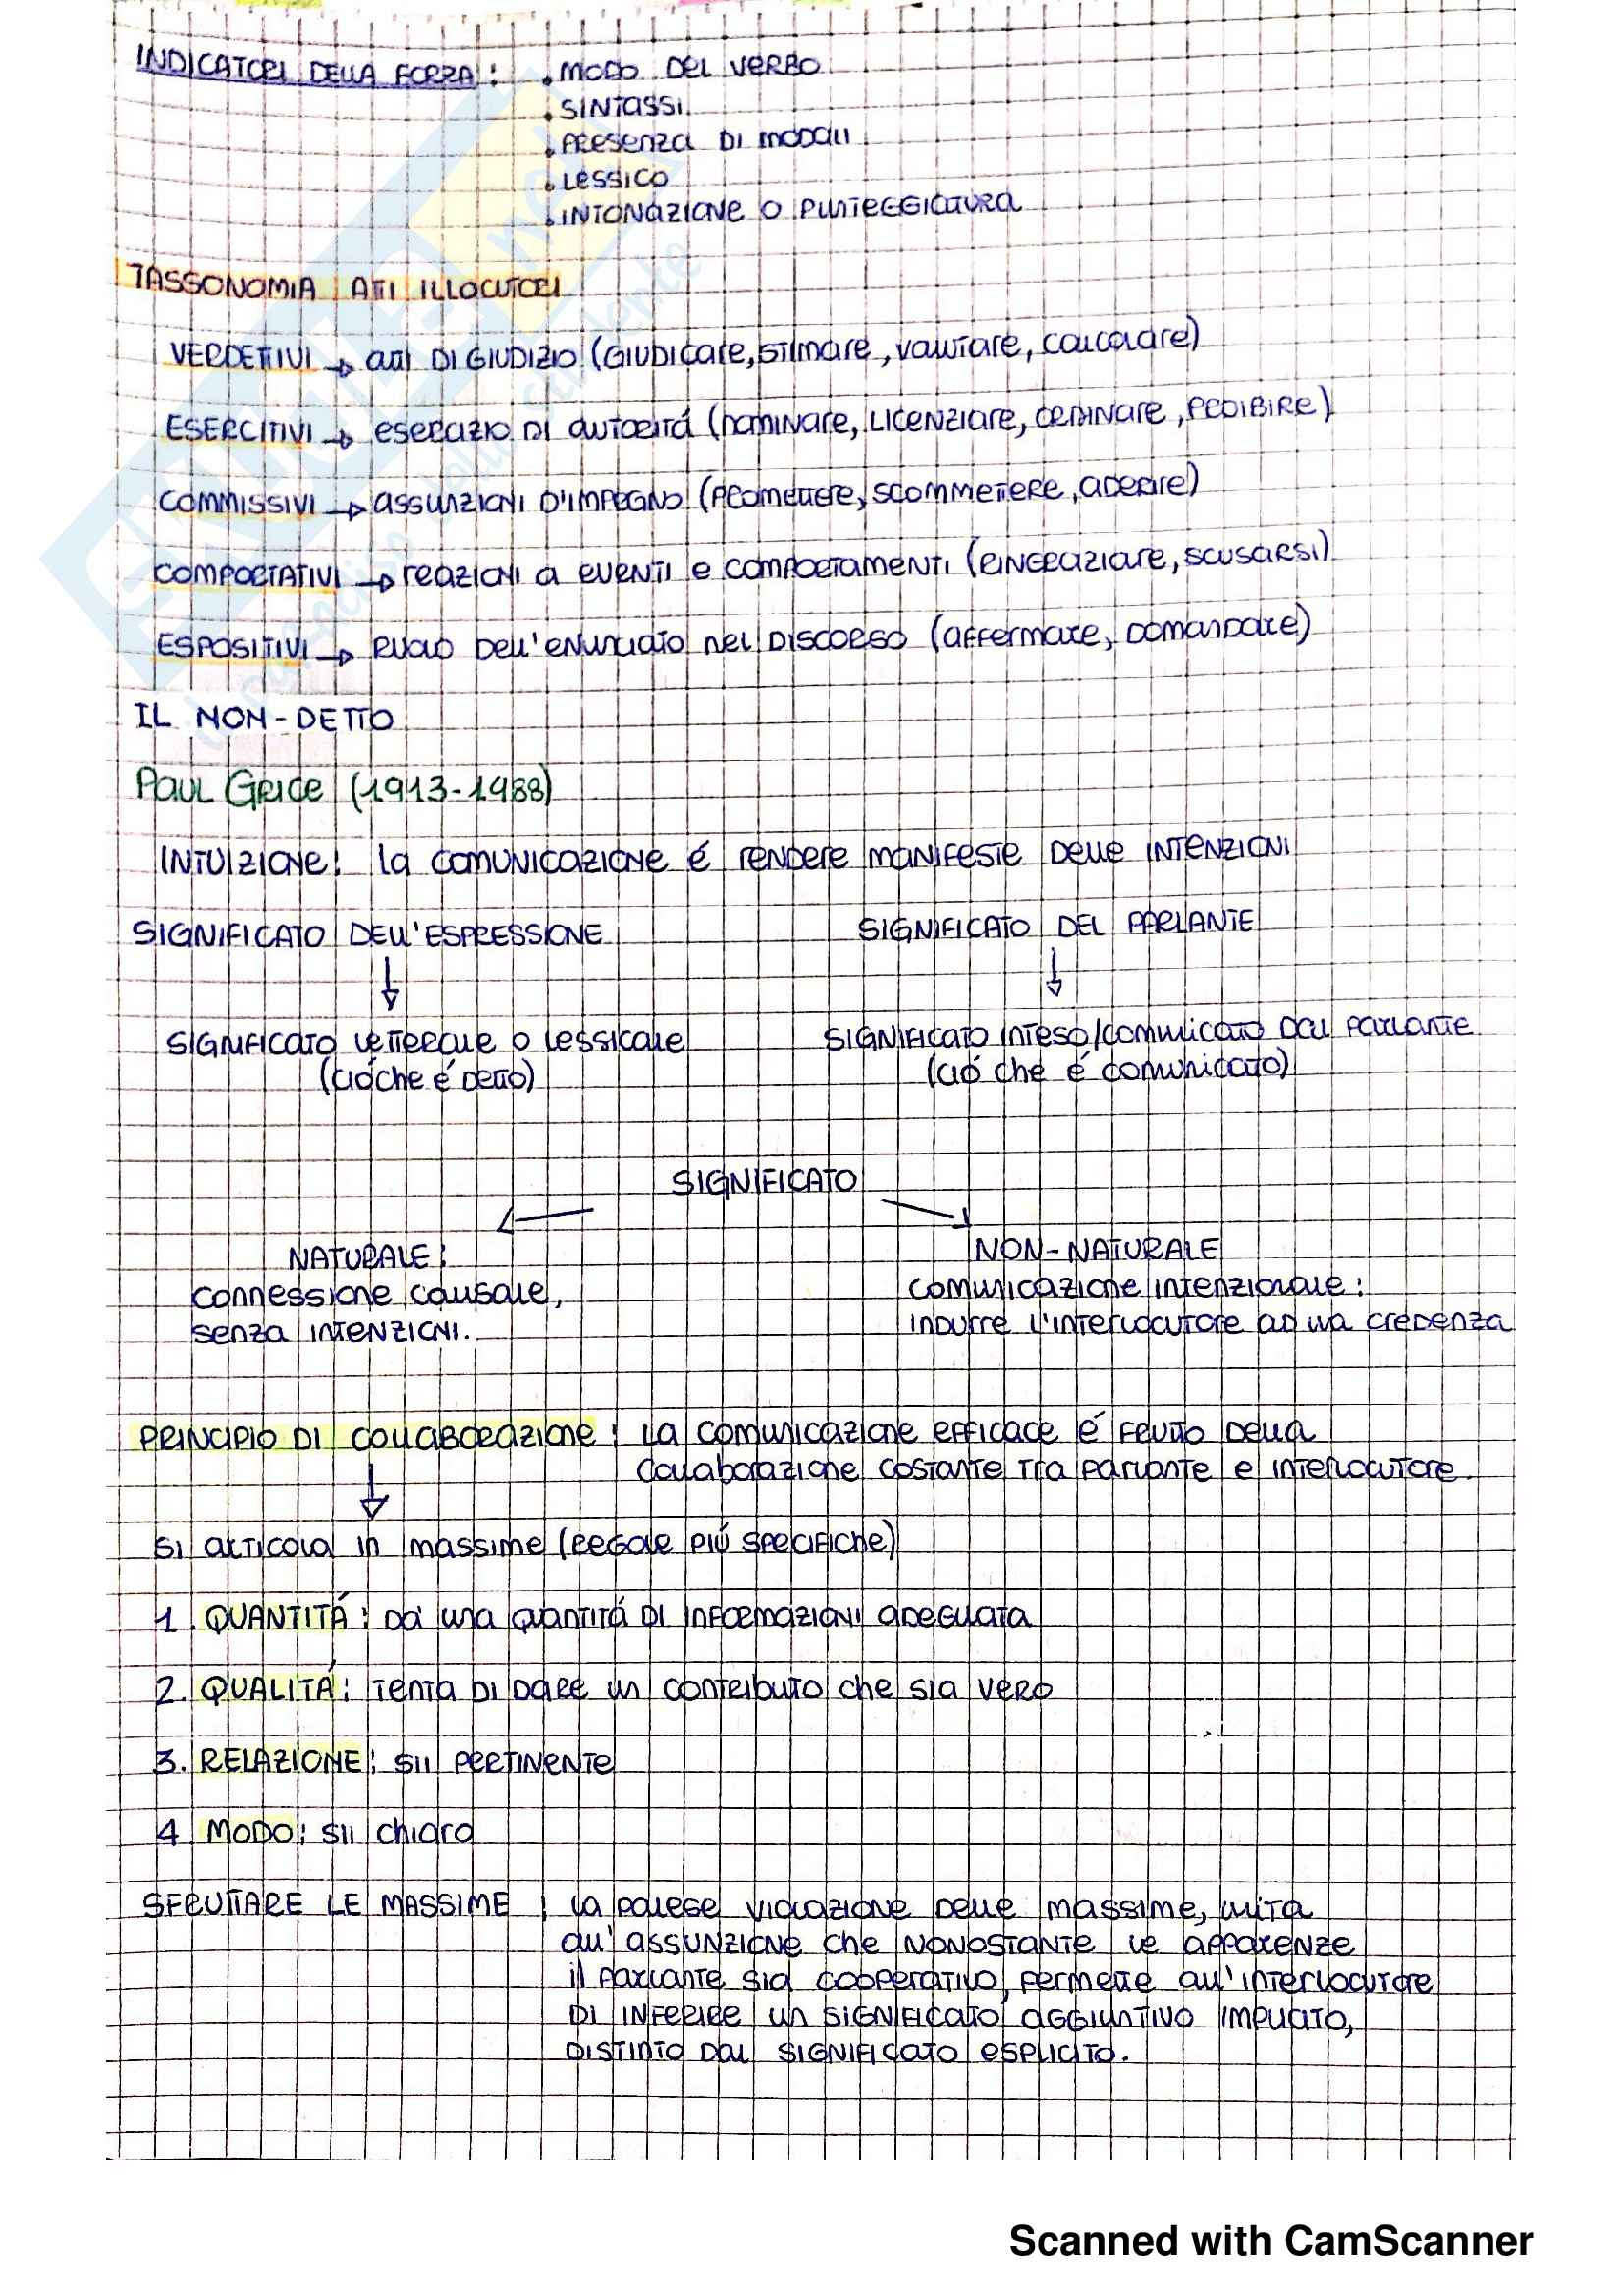 INDICATORI DELLA FORZA : . MODO DEL VERBO
. SINTASSI
. PRESENZA DI MODALI
. LESSICO
. INTONAZIONE O PUNTEGGIATURA
TASSONOMIA ATTI ILLOCUTORI
VERDETTIVI → ATTI DI GIUDIZIO (GIUDICARE, STIMARE, VALUTARE, CALCOLARE)
ESERCITIVI → ESERCIZIO DI AUTORITÁ (NOMINARE, LICENZIARE, ORDINARE, PROIBIRE)
COMMISSIVI → ASSUNZIONI D'IMPEGNO (PROMETTERE, SCOMMETTERE, ADERIRE)
COMPORTATIVI → REAZIONI A EVENTI E COMPORTAMENTI (RINGRAZIARE, SCUSARSI)
ESPOSITIVI → RUOLO DELL'ENUNCIATO NEL DISCORSO (AFFERMARE, DOMANDARE)
IL NON-DETTO
PAUL GRICE (1913-1988)
INTUIZIONE: LA COMUNICAZIONE É RENDERE MANIFESTE DELLE INTENZIONI
SIGNIFICATO DELL'ESPRESSIONE SIGNIFICATO DEL PARLANTE
↓ ↓
SIGNIFICATO LETTERALE O LESSICALE SIGNIFICATO INTESO/COMUNICATO DAL PARLANTE
(CIÓ CHE É DETTO) (CIÓ CHE É COMUNICATO)
SIGNIFICATO
NATURALE: NON-NATURALE
CONNESSIONE CAUSALE, COMUNICAZIONE INTENZIONALE:
SENZA INTENZIONI. INDURRE L'INTERLOCUTORE AD UNA CREDENZA
PRINCIPIO DI COLLABORAZIONE: LA COMUNICAZIONE EFFICACE É FRUTTO DELLA
COLLABORAZIONE COSTANTE TRA PARLANTE E INTERLOCUTORE.
↓
SI ARTICOLA IN MASSIME (REGOLE PIÚ SPECIFICHE)
1. QUANTITÁ: DA' UNA QUANTITÁ DI INFORMAZIONI ADEGUATA
2. QUALITÁ: TENTA DI DARE UN CONTRIBUTO CHE SIA VERO
3. RELAZIONE: SII PERTINENTE
4 MODO: SII CHIARO
SFRUTTARE LE MASSIME : LA PALESE VIOLAZIONE DELLE MASSIME, UNITA
ALL'ASSUNZIONE CHE NONOSTANTE LE APPARENZE
IL PARLANTE SIA COOPERATIVO, PERMETTE ALL'INTERLOCUTORE
DI INFERIRE UN SIGNIFICATO AGGIUNTIVO IMPLICITO,
DISTINTO DAL SIGNIFICATO ESPLICITO.
Scanned with CamScanner